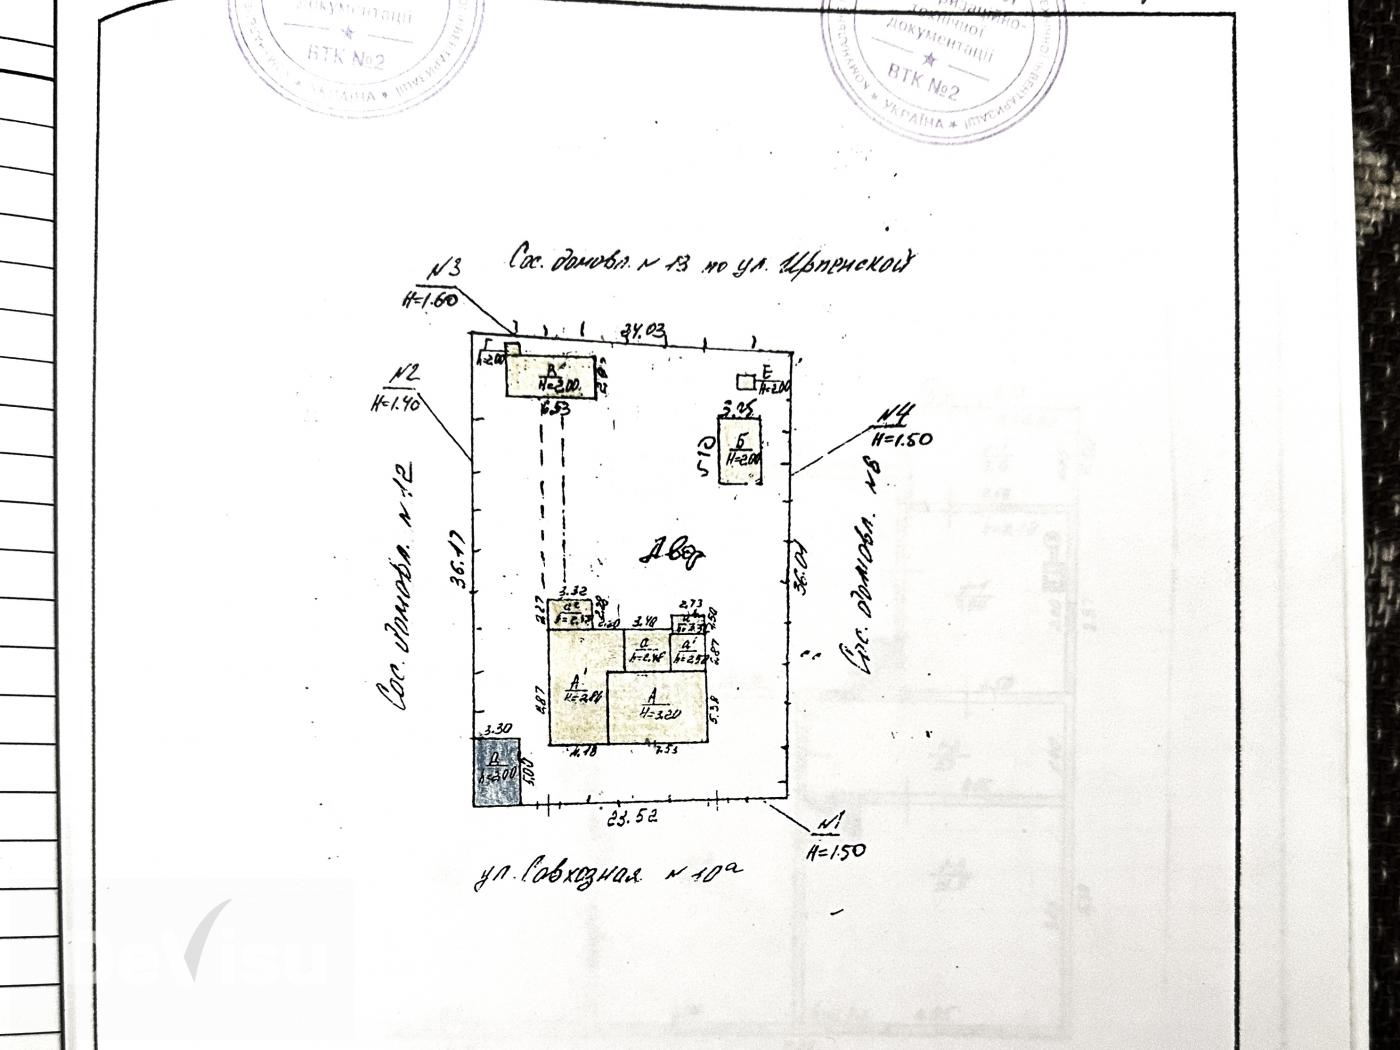 документації
ВТК №2
УКРАЇНА
технічної
документації
ВТК №2
УКРАЇНА
ІНВЕНТАРИЗАЦІЇ
Сос. домовл. N 13 по ул. Ирпенской
N3
H=1.60
24.03
N2
H=1.40
Г
h=2.00
В
H=2.00
6.53
Е
H=2.00
3.25
Б
H=2.00
5.10
N4
H=1.50
Сос. домовл. N 12
36.17
Двор
36.04
Сос. домовл. N 8
3.32
2.27
2.20
3.40
2.73
а
h=2.48
а'
h=2.50
2.87
А'
H=2.86
А
H=3.20
5.38
4.18
7.53
3.30
h=2.00
5.00
23.52
N1
H=1.50
ул. Совхозная N 10а
DeVisu